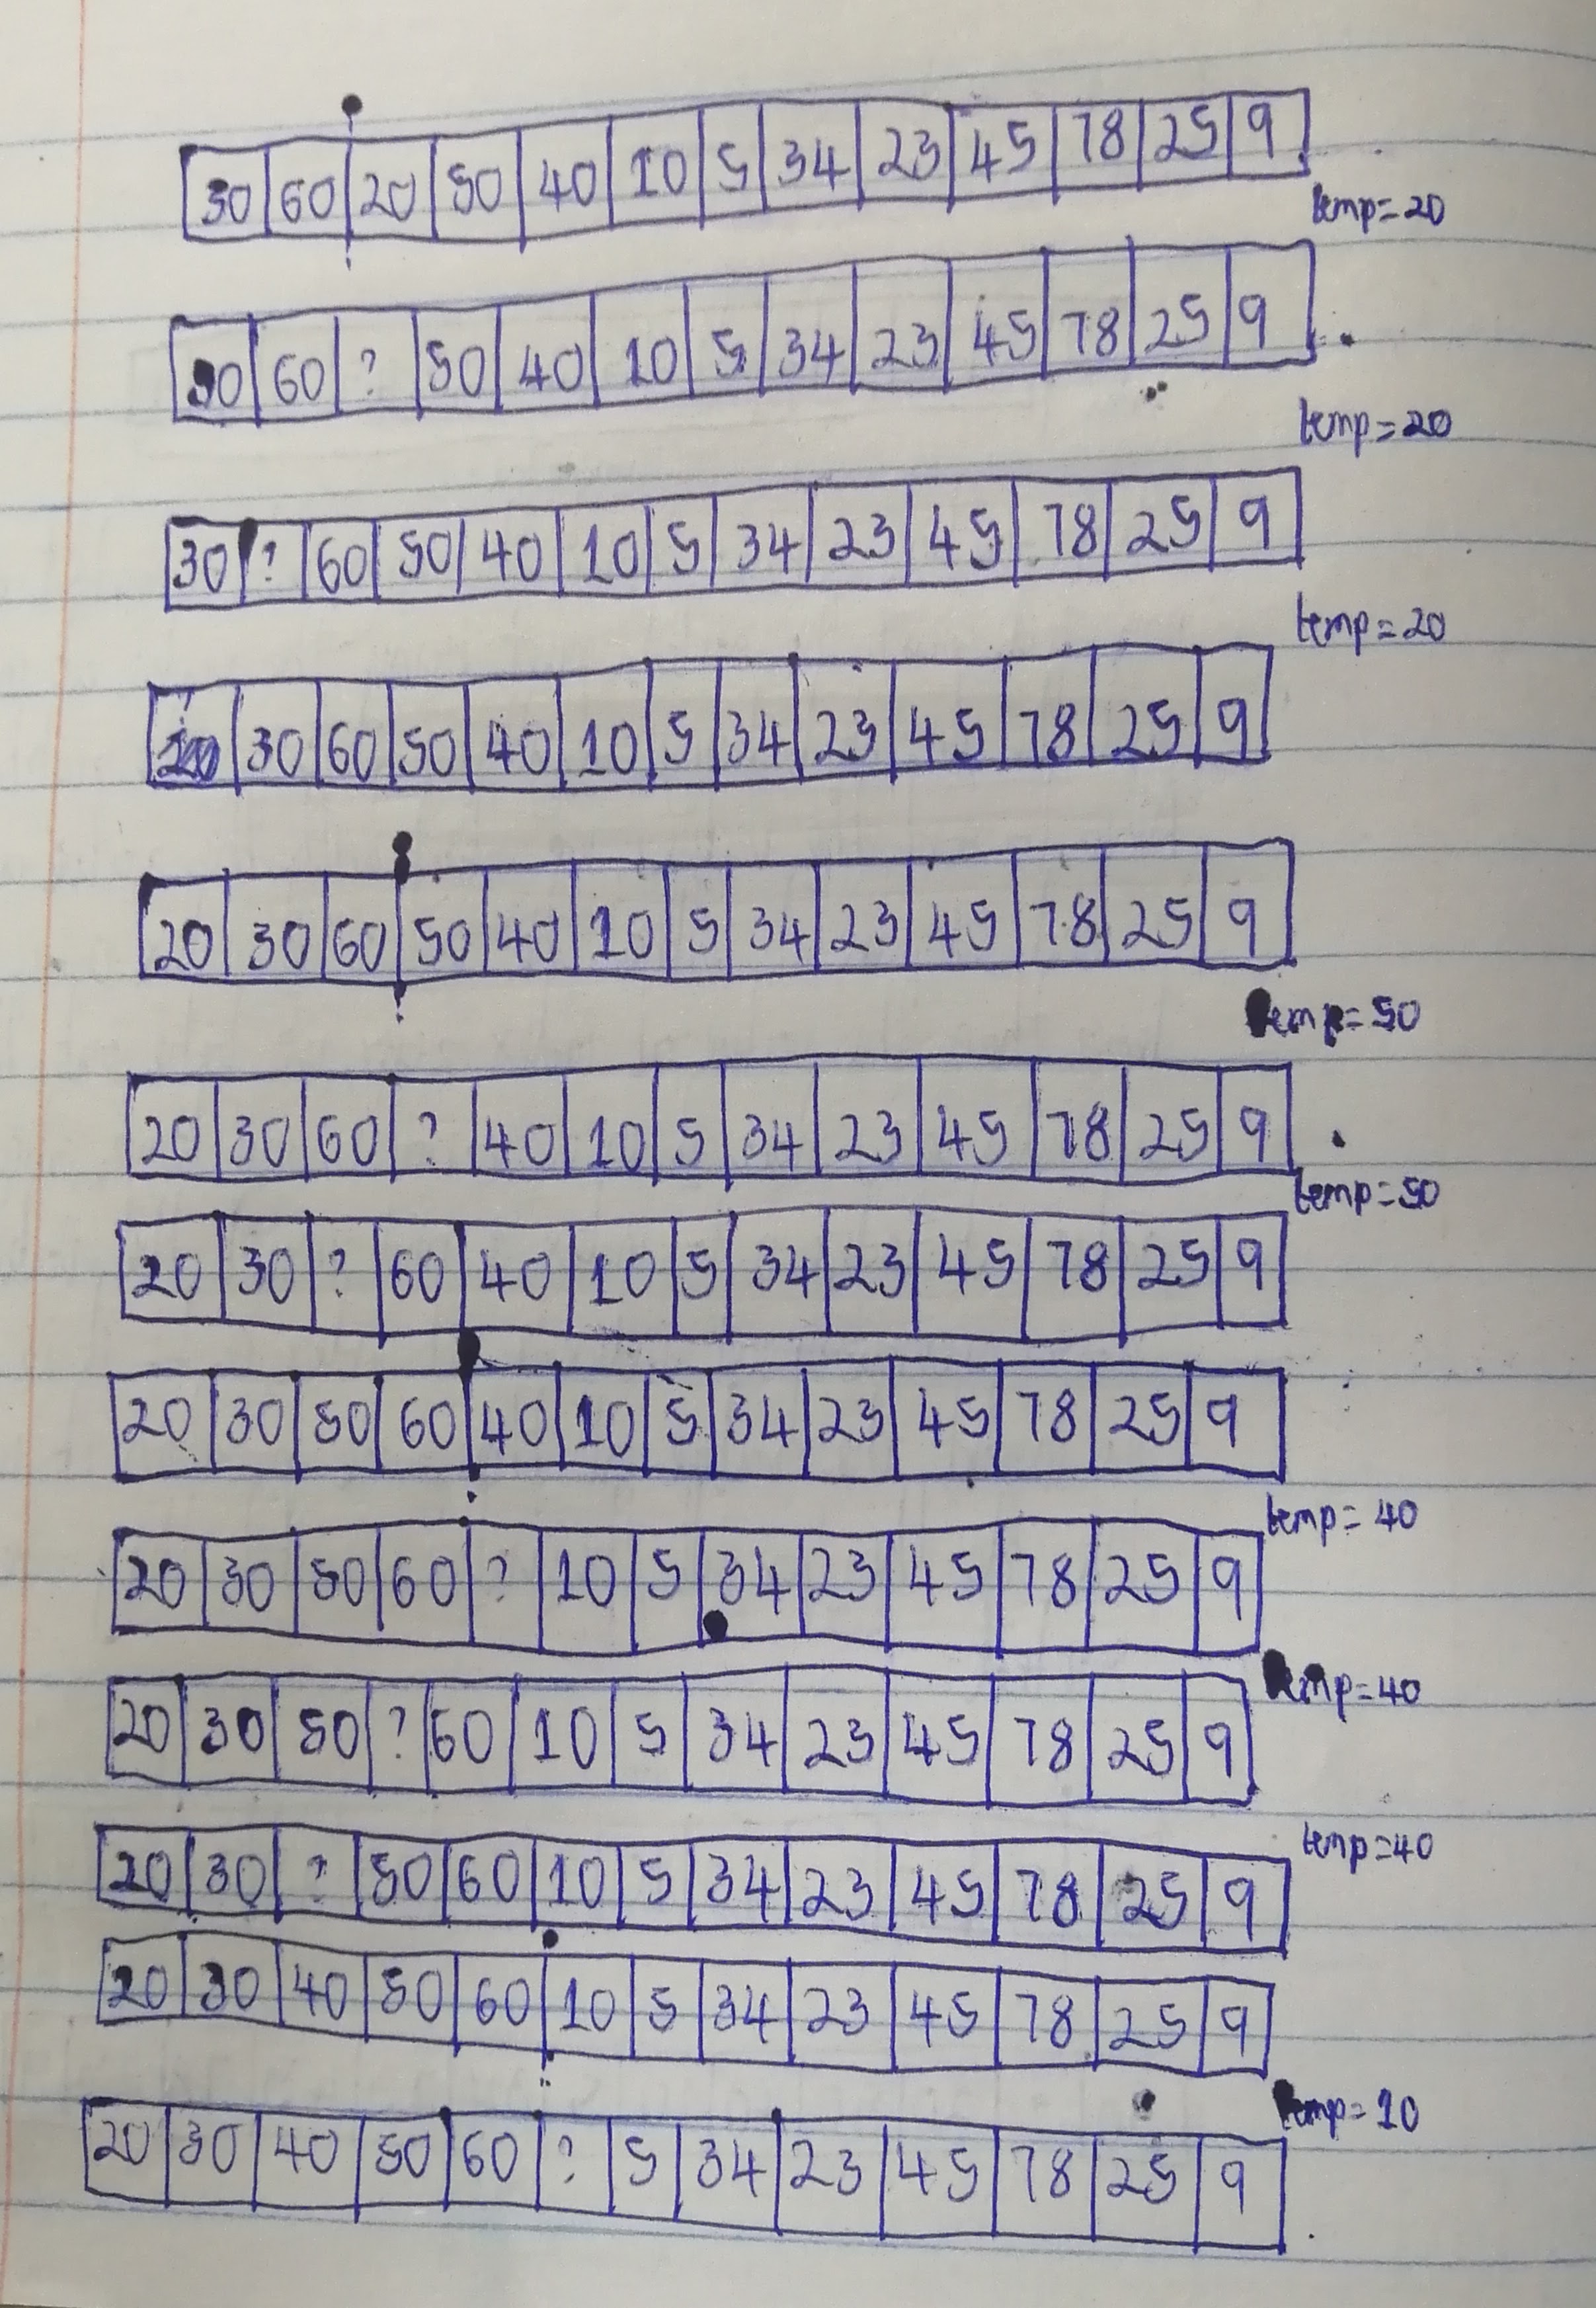 30 60 20 50 40 10 5 34 23 45 78 25 9
temp=20
30 60 ? 50 40 10 5 34 23 45 78 25 9
temp=20
30 ? 60 50 40 10 5 34 23 45 78 25 9
temp=20
20 30 60 50 40 10 5 34 23 45 78 25 9
20 30 60 50 40 10 5 34 23 45 78 25 9
temp=50
20 30 60 ? 40 10 5 34 23 45 78 25 9
temp=50
20 30 ? 60 40 10 5 34 23 45 78 25 9
20 30 50 60 40 10 5 34 23 45 78 25 9
temp=40
20 30 50 60 ? 10 5 34 23 45 78 25 9
temp=40
20 30 50 ? 60 10 5 34 23 45 78 25 9
temp=40
20 30 ? 50 60 10 5 34 23 45 78 25 9
20 30 40 50 60 10 5 34 23 45 78 25 9
temp=10
20 30 40 50 60 ? 5 34 23 45 78 25 9